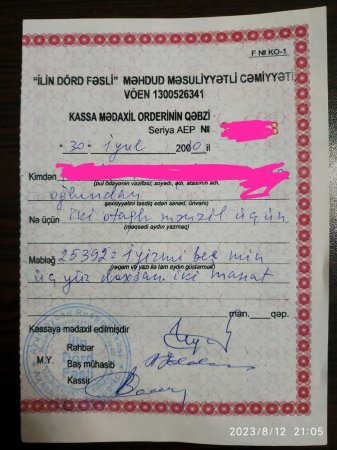 F № KO-1
"İLİN DÖRD FƏSLİ" MƏHDUD MƏSULİYYƏTLİ CƏMİYYƏTİ
VÖEN 1300526341
KASSA MƏDAXİL ORDERİNİN QƏBZİ
Seriya AEP №
"30" iyul 2010 il
Kimdən
(pul ödəyənin vəzifəsi, soyadı, adı, atasının adı,
oğlundan
şəxsiyyətini təsdiq edən sənəd, ünvanı)
Nə üçün iki otaqlı mənzil üçün
(məqsədi aydın yazmaq)
Məbləğ 25392= iyirmi beş min
(rəqəm və yazı ilə tam aydın göstərmək)
üç yüz doxsan iki manat
man. qəp.
Kassaya mədaxil edilmişdir
Rəhbər
M.Y. Baş mühasib
Kassir
2023/8/12 21:05